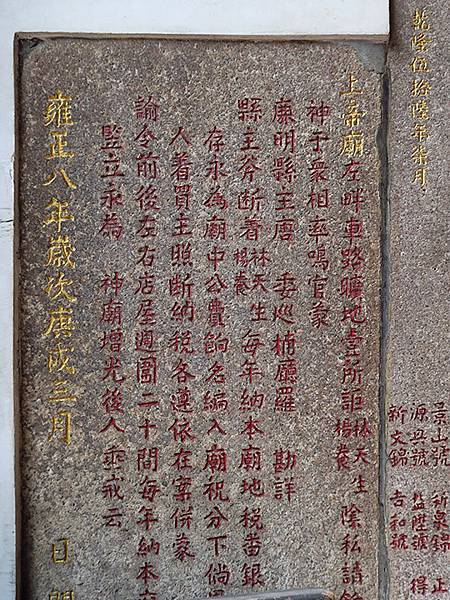 乾隆伍拾陸年柒月
景山號
源丑號 益陞號 得
新文錦 吉和號
上帝廟左畔車路曠地壹所詎林天生楊養陰私請
神于衆相率鳴官蒙
廉明縣主唐 委巡捕廳羅 勘詳
縣主斧断着林天生楊養每年納本廟地税畨銀
存永為廟中公費餉名編入廟祝分下倘
人着買主照断納税各遵依在案併蒙
諭令前後左右店屋週圍二十間每年納本
竪立永為 神廟增光後人 垂戒云
雍正八年嵗次庚戌三月 日